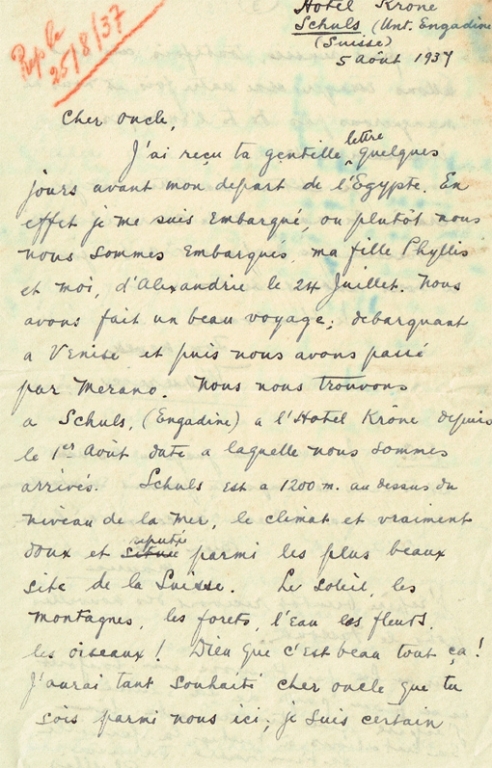 Hotel Krone
Schuls (Unt. Engadine
(Suisse)
5 Août 1937
Rep le
25/8/37
Cher oncle,
J'ai reçu ta gentille lettre quelques
jours avant mon depart de l'Egypte. En
effet je me suis embarqué, ou plutôt nous
nous sommes embarqués, ma fille Phyllis
et moi, d'Alexandrie le 24 Juillet. Nous
avons fait un beau voyage; debarquant
a Venise et puis nous avons passé
par Merano. Nous nous trouvons
a Schuls, (Engadine) a l'Hotel Krone depuis
le 1er Août date a laquelle nous sommes
arrivés. Schuls est a 1200 m. au dessus du
niveau de la mer, le climat et vraiment
doux et situé reputé parmi les plus beaux
site de la Suisse. Le soleil, les
montagnes, les forets, l'eau les fleurs,
les oiseaux! Dieu que c'est beau tout ça!
J'aurai tant souhaité cher oncle que tu
sois parmi nous ici; je suis certain